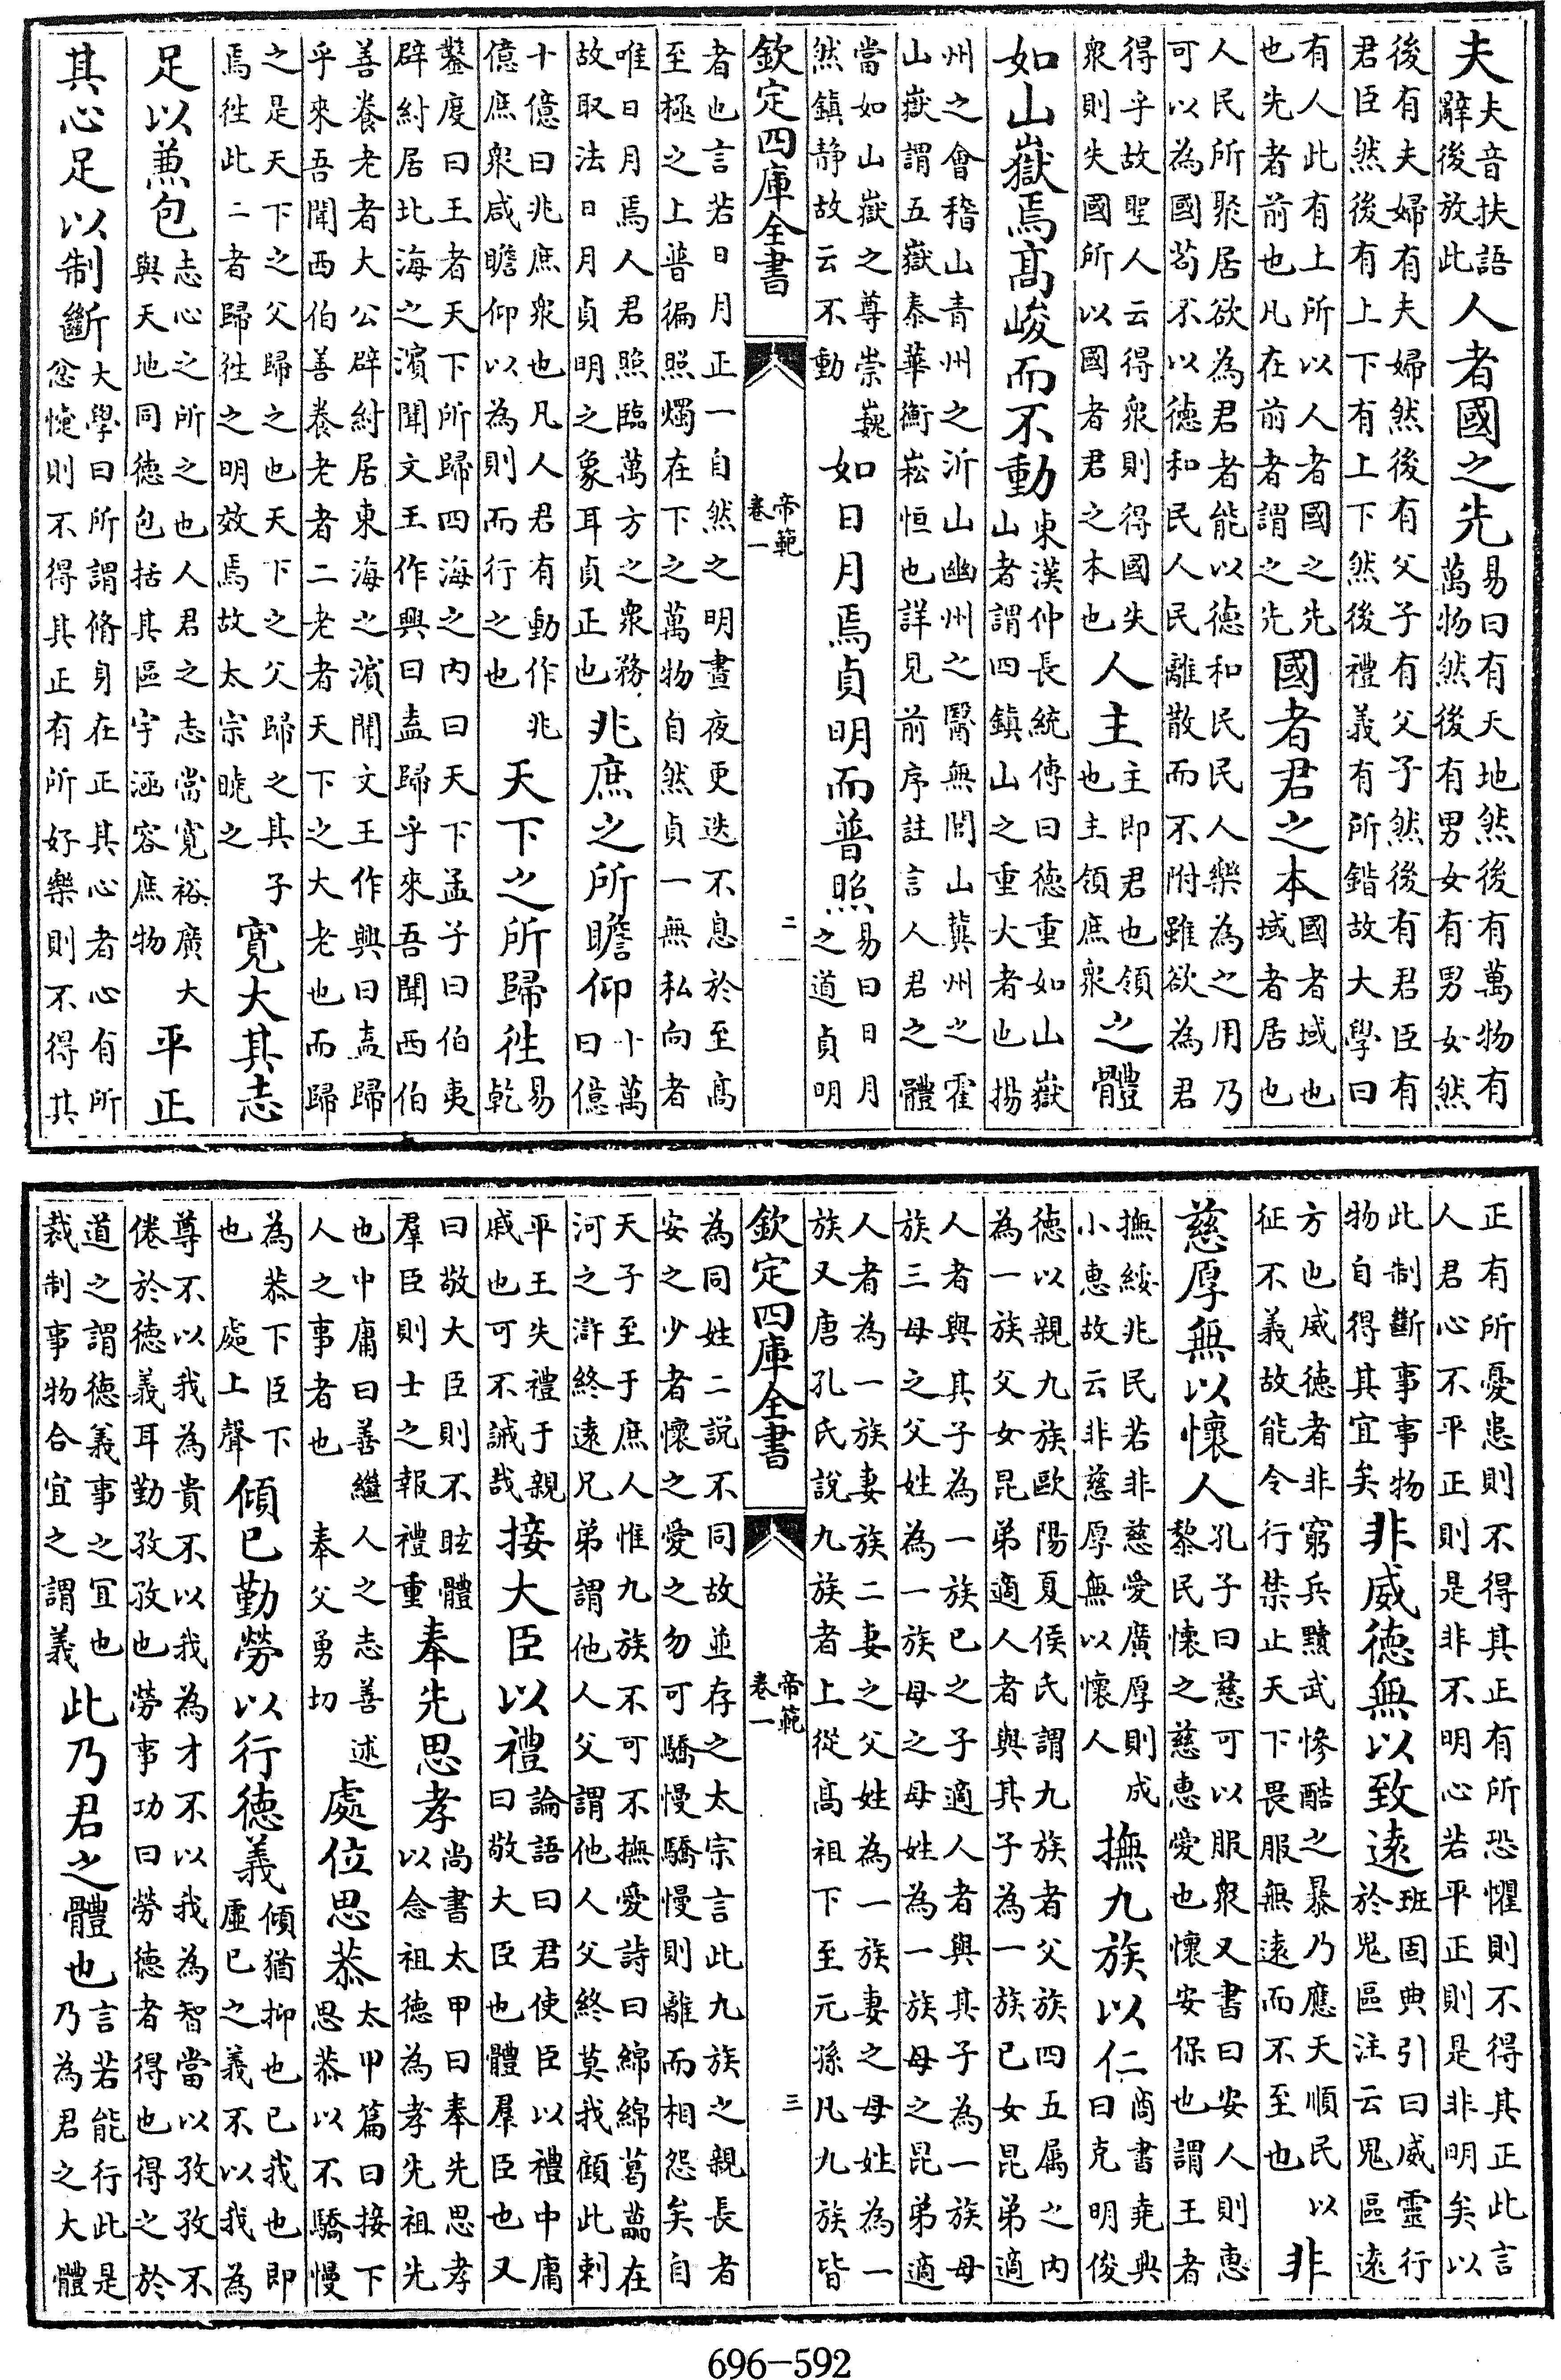 夫夫音扶語辭後放此人者國之先易曰有天地然後有萬物有萬物然後有男女有男女然
後有夫婦有夫婦然後有父子有父子然後有君臣有君臣然後有上下有上下然後禮義有所錯故大學曰
有人此有上所以人者國之先也先者前也凡在前者謂之先國者君之本國者域也域者居也
人民所聚居欲為君者能以德和民民人樂為之用乃可以為國茍不以德和民人民離散而不附雖欲為君
得乎故聖人云得衆則得國失衆則失國所以國者君之本也人主主即君也領也主領庶衆之體
如山嶽焉高峻而不動東漢仲長統傳曰德重如山嶽山者謂四鎮山之重大者也揚
州之會稽山青州之沂山幽州之醫無閭山冀州之霍山嶽謂五嶽泰華衡嵩恒也詳見前序註言人君之體
當如山嶽之尊崇巍然鎮静故云不動如日月焉貞明而普照易曰日月之道貞明
欽定四庫全書 帝範卷一 二
者也言若日月正一自然之明晝夜更迭不息於至高至極之上普徧照燭在下之萬物自然貞一無私向者
唯日月焉人君照臨萬方之衆務故取法日月貞明之象耳貞正也兆庶之所瞻仰十萬曰億
十億曰兆庶衆也凡人君有動作兆億庶衆咸瞻仰以為則而行之也天下之所歸往易乾
鑿度曰王者天下所歸四海之内曰天下孟子曰伯夷辟紂居北海之濱聞文王作興曰盍歸乎來吾聞西伯
善養老者大公辟紂居東海之濱聞文王作興曰盍歸乎來吾聞西伯善養老者二老者天下之大老也而歸
之是天下之父歸之也天下之父歸之其子焉往此二者歸往之明效焉故太宗曉之寛大其志
足以兼包志心之所之也人君之志當寛裕廣大與天地同德包括其區宇涵容庶物平正
其心足以制斷大學曰所謂脩身在正其心者心有所忿懥則不得其正有所好樂則不得其
正有所憂患則不得其正有所恐懼則不得其正此言人君心不平正則是非不明心若平正則是非明矣以
此制斷事事物物自得其宜矣非威德無以致遠班固典引曰威靈行於鬼區注云鬼區遠
方也威德者非窮兵黷武慘酷之暴乃應天順民以征不義故能令行禁止天下畏服無遠而不至也非
慈厚無以懷人孔子曰慈可以服衆又書曰安人則惠黎民懷之慈惠愛也懷安保也謂王者
撫綏兆民若非慈愛廣厚則成小惠故云非慈厚無以懷人撫九族以仁商書堯典曰克明俊
德以親九族歐陽夏侯氏謂九族者父族四五属之内為一族父女昆弟適人者與其子為一族已女昆弟適
人者與其子為一族已之子適人者與其子為一族母族三母之父姓為一族母之母姓為一族母之昆弟適
人者為一族妻族二妻之父姓為一族妻之母姓為一族又唐孔氏說九族者上從高祖下至元孫凡九族皆
欽定四庫全書 帝範卷一 三
為同姓二説不同故並存之太宗言此九族之親長者安之少者懷之愛之勿可驕慢驕慢則離而相怨矣自
天子至于庶人惟九族不可不撫愛詩曰綿綿葛藟在河之滸終遠兄弟謂他人父謂他人父終莫我顧此刺
平王失禮于親戚也可不誡哉接大臣以禮論語曰君使臣以禮中庸曰敬大臣也體羣臣也又
曰敬大臣則不眩體羣臣則士之報禮重奉先思孝尚書太甲曰奉先思孝以念祖德為孝先祖先
也中庸曰善繼人之志善述人之事者也奉父勇切處位思恭太甲篇曰接下思恭以不驕慢
為恭下臣下也處上聲傾已勤勞以行德義傾猶抑也已我也即虛已之義不以我為
尊不以我為貴不以我為才不以我為智當以孜孜不倦於德義耳勤孜孜也勞事功曰勞德者得也得之於
道之謂德義事之宜也裁制事物合宜之謂義此乃君之體也言若能行此是乃為君之大體
696-592